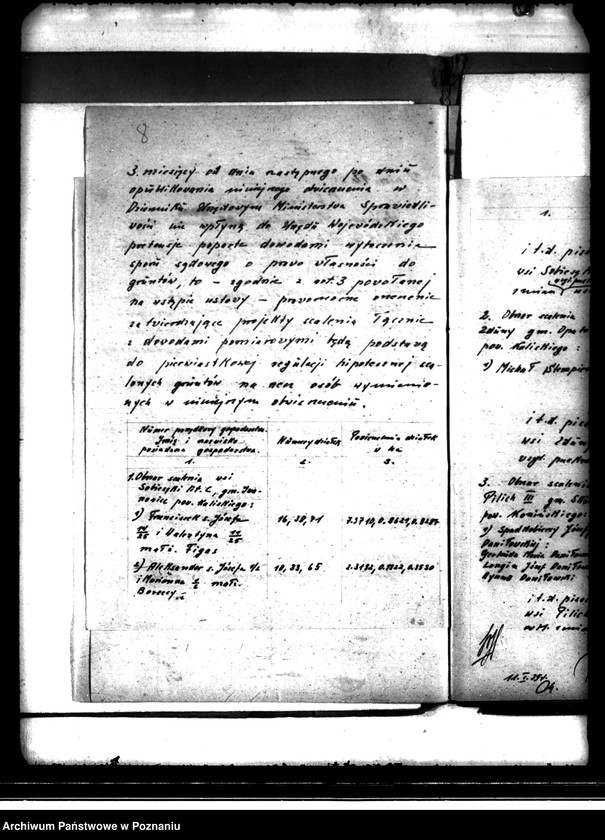 8
3 miesięcy od dnia następnego po dniu
opublikowania niniejszego obwieszczenia w
Dzienniku Urzędowym Ministerstwa Sprawiedli-
wości nie wpłyną do Urzędu Wojewódzkiego
pretensje poparte dowodami wytoczenia
sporu sądowego o prawo własności do
gruntów, to – zgodnie z art. 3 powołanej
na wstępie ustawy – prawomocne orzeczenie
zatwierdzające projekty scalenia łącznie
z dowodami pomiarowymi będą podstawą
do pierwiastkowej regulacji hipotecznej sca-
lonych gruntów na rzecz osób wymienio-
nych w niniejszym obwieszczeniu.
Numer porządkowy gospodarstw.
Imię i nazwisko
posiadacza gospodarstwa.
Numery działek
Powierzchnia działek
w ha
1. 2. 3.
1. Obszar scalenia wsi
Sobiesęki lit. C, gm.
pow. Kaliskiego:
1) Franciszek s. Józefa
i Walentyna
małż. Figas
16, 38, 71
2) Aleksander s. Józefa 1/2
i Marianna 1/2 małż.
10, 33, 65
1.
i t.d. pisać
wsi Sobiesęki
2. Obszar scalenia
Zdżary gm. Opat
pow. Kaliskiego:
1) Michał
i t.d. pisać
wsi
3. Obszar scalenia
Pilich III gm.
pow. Konińskiego:
1) Spadkobiercy Józefa
Daniłowskiej:
Gertruda Maria Daniłow
Longin Józef Daniłow
Daniłowski
i t.d. pisać
wsi Pilich
Archiwum Państwowe w Poznaniu